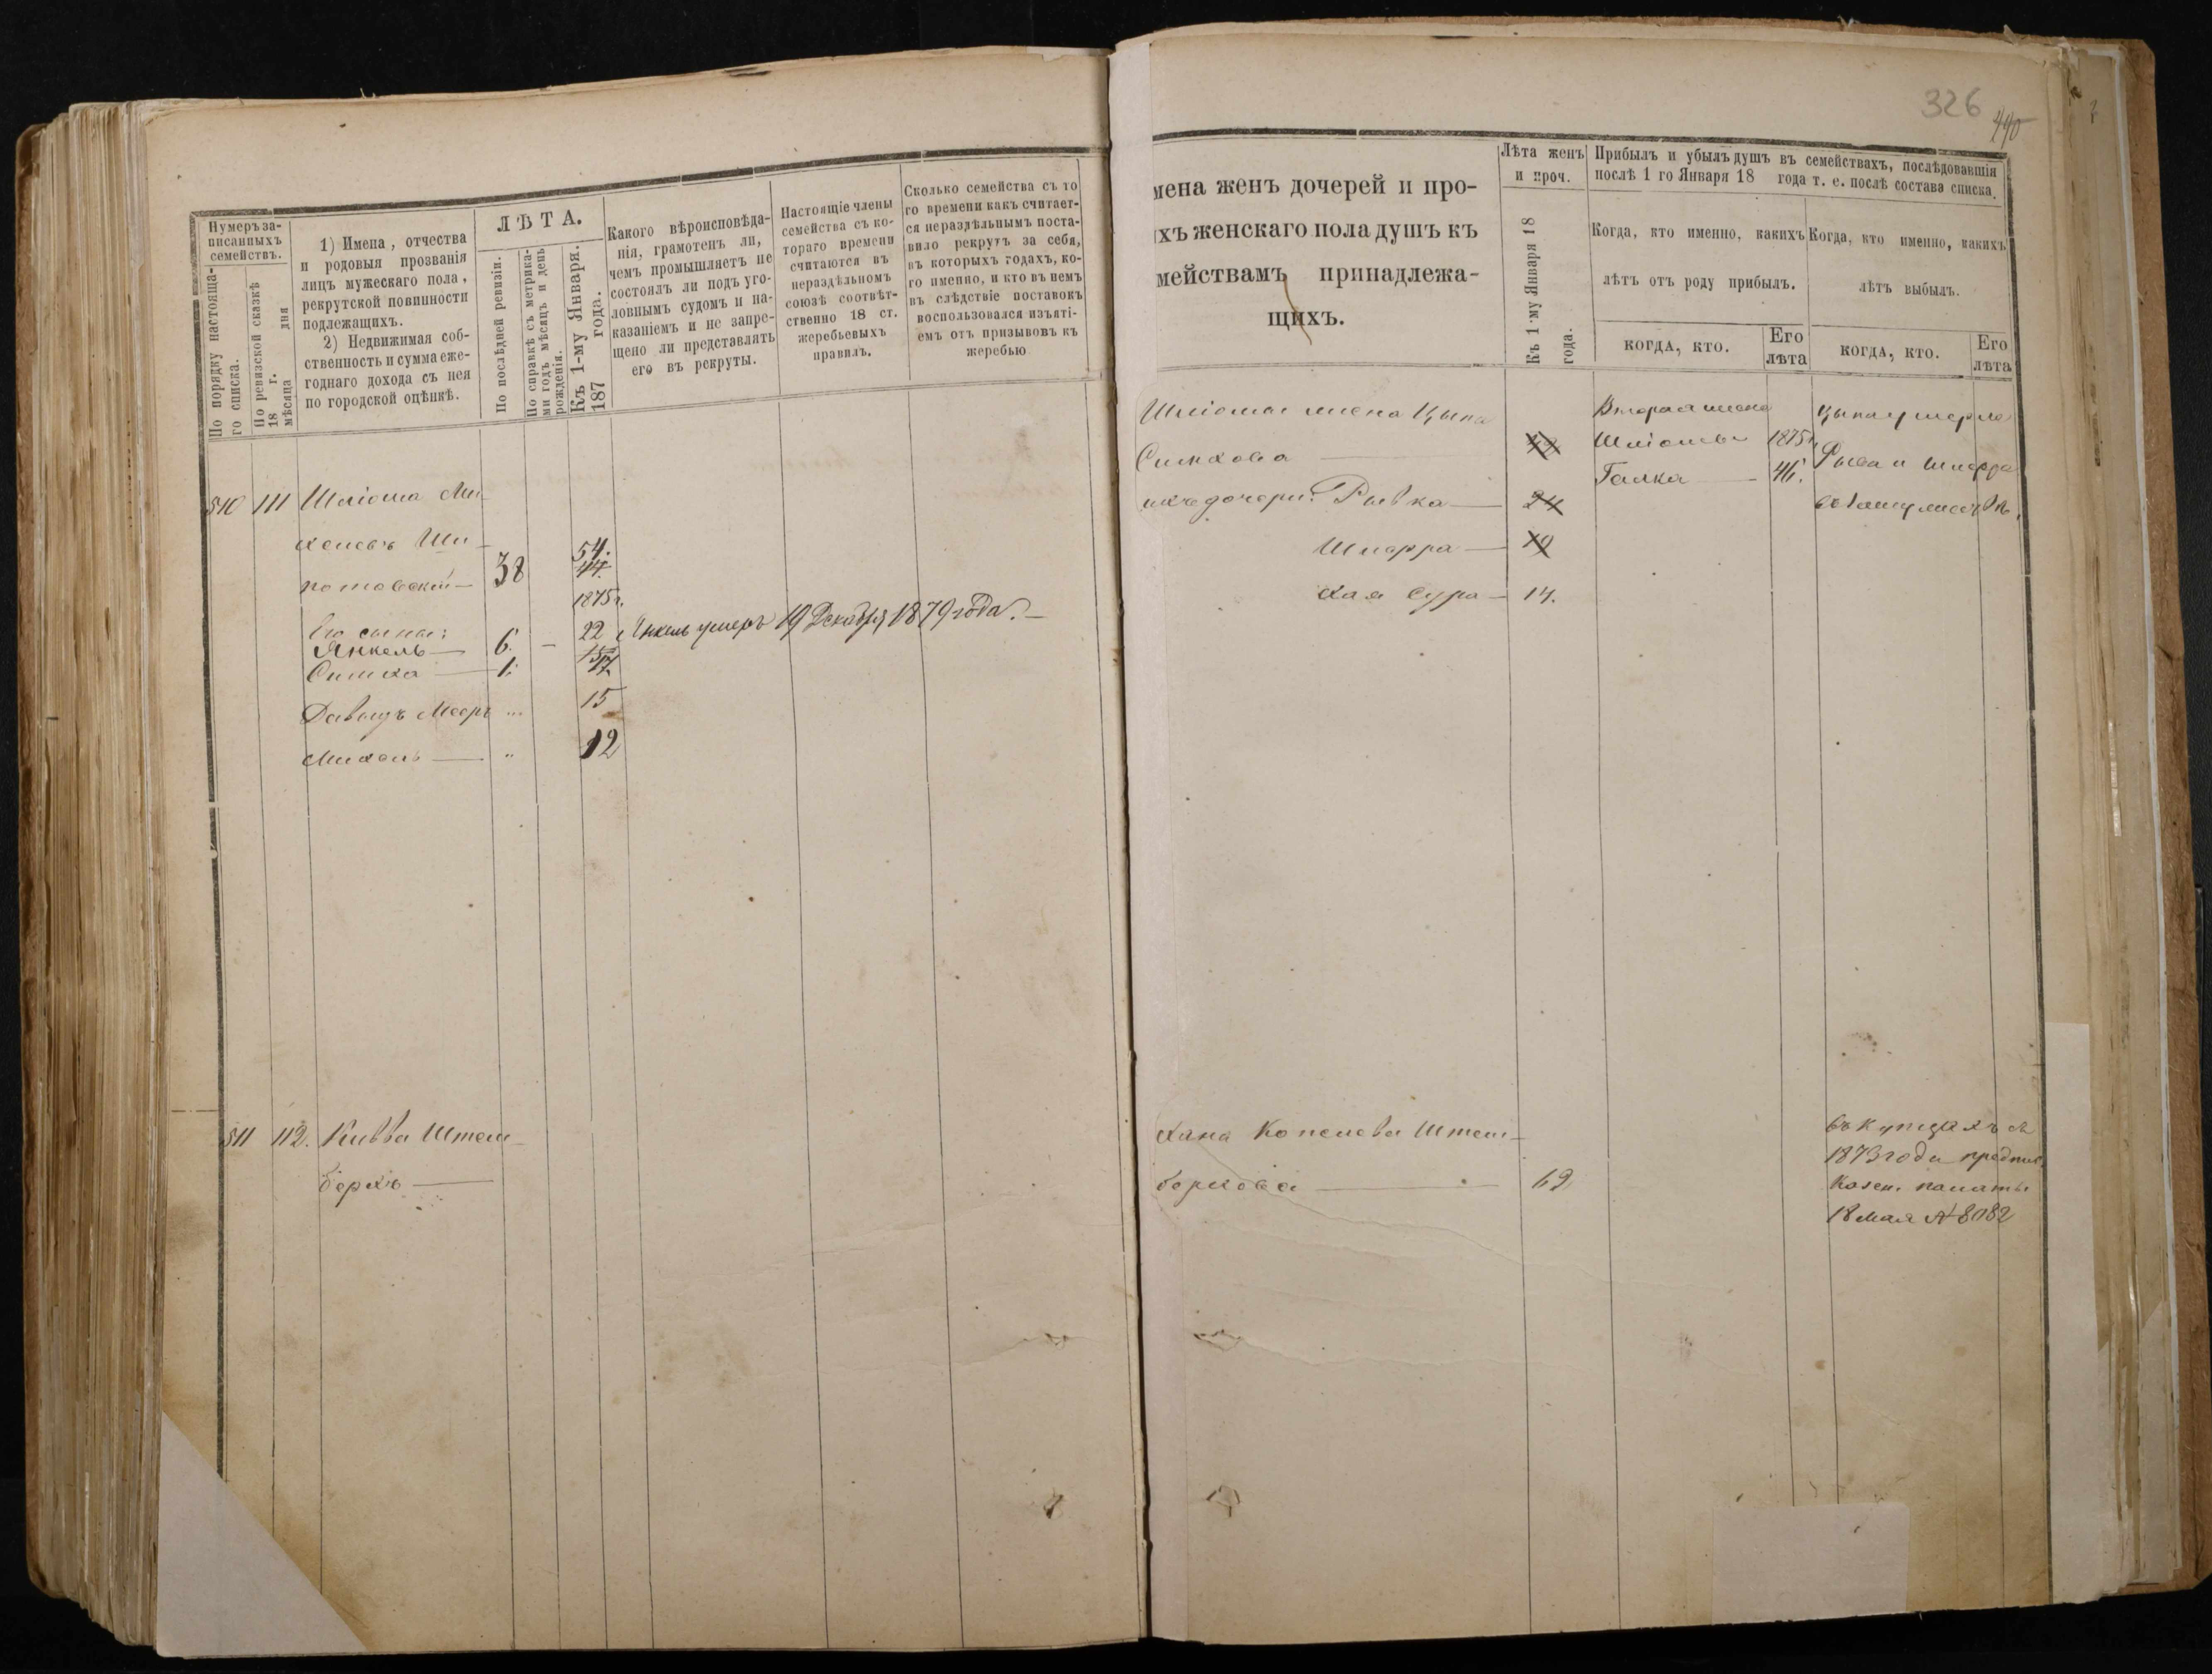 Нумеръ за-
писанныхъ
семействъ.
По порядку настояща-
го списка.
По ревизской сказкѣ
18 г.
мѣсяца дня
1) Имена, отчества
и родовыя прозванія
лицъ мужескаго пола,
рекрутской повинности
подлежащихъ.
2) Недвижимая соб-
ственность и сумма еже-
годнаго дохода съ нея
по городской оцѣнкѣ.
ЛѢТА.
По послѣдней ревизіи.
По справкѣ съ метрика-
ми годъ мѣсяцъ и день
рожденія.
Къ 1-му Января.
187 года.
Какого вѣроисповѣда-
нія, грамотенъ ли,
чемъ промышляетъ не
состоялъ ли подъ уго-
ловнымъ судомъ и на-
казаніемъ и не запре-
щено ли представлять
его въ рекруты.
Настоящіе члены
семейства съ ко-
тораго времени
считаются въ
нераздѣльномъ
союзѣ соотвѣт-
ственно 18 ст.
жеребьевыхъ
правилъ.
Сколько семейства съ то
го времени какъ считает-
ся нераздѣльнымъ поста-
вило рекрутъ за себя,
въ которыхъ годахъ, ко-
го именно, и кто въ немъ
въ слѣдствіе поставокъ
воспользовался изъяті-
емъ отъ призывовъ къ
жеребью
510 111 Шліома Ми-
хелевъ Ши-
потовскій 38 54.
44.
1875 г.
Его сыны:
Янкель 6. 22 Янкель умеръ 19 Декабря 1879 года.
Симха 1. 17
Давидъ Мееръ 15
Михель 12
511 112. Кивва Штей-
берхъ
326
440
мена женъ дочерей и про-
ихъ женскаго пола душъ къ
мействамъ принадлежа-
щихъ.
Лѣта женъ
и проч.
Къ 1-му Января 18
года.
Прибылъ и убылъ душъ въ семействахъ, послѣдовавшія
послѣ 1 го Января 18 года т. е. послѣ состава списка.
Когда, кто именно, какихъ
лѣтъ отъ роду прибылъ.
Когда, кто именно, какихъ
лѣтъ выбылъ.
когда, кто.
Его
лѣта
когда, кто.
Его
лѣта
Шліомы жена Цыпа
Симхова
ихъ дочери: Рывка 24
Шперра 19
Хая Сура 14.
Вторая жена
Шліомы 1875 г.
Галка 46.
Цыпа умерла
Рывка и Шперра
въ замужествѣ.
Хана Копелева Штей-
бергова 69
въ купцахъ съ
1873 года предпис.
Казен. палаты
18 Мая № 8082